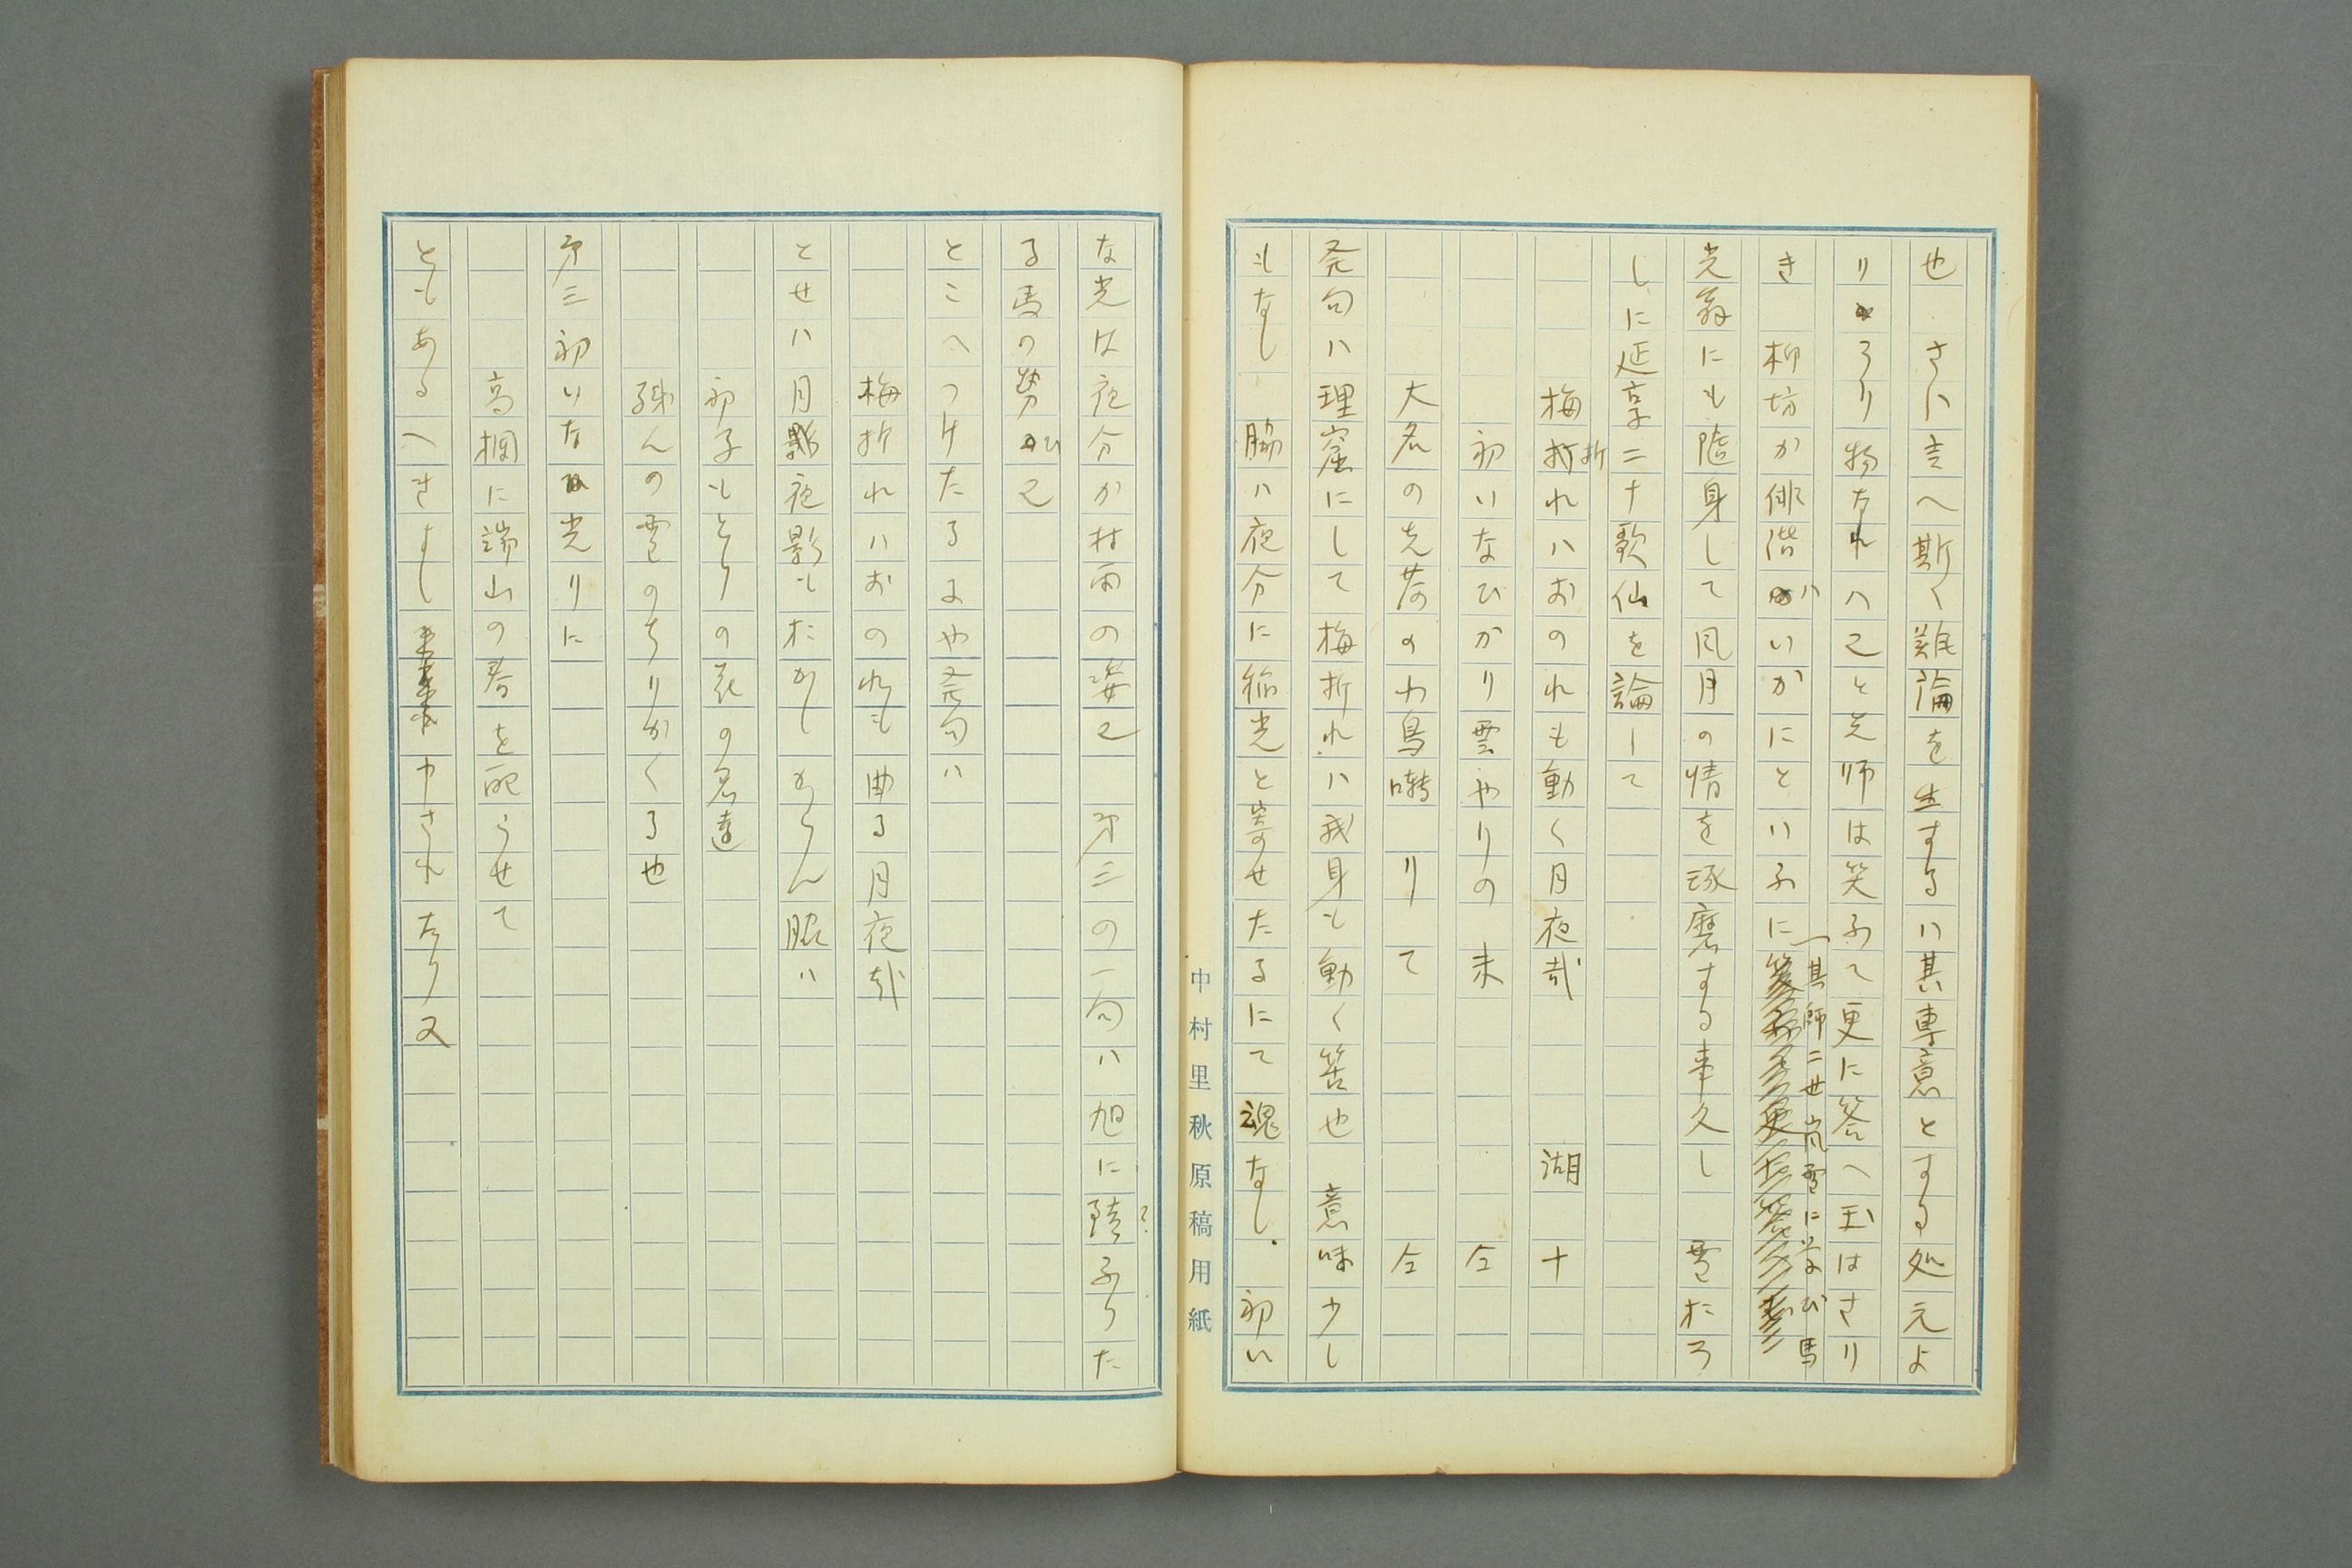 也　さハ言へ斯く難論を生するハ其専意とする処元よ
りろり物なれハ也と先師は笑ふて更に答へ玉はさり
き　柳坊か俳諧ハいかにといふに
其師二世嵐雪に学び馬
光翁にも随身して風月の情を琢磨する事久し　雪おろ
しに延享二十歌仙を論して
梅折れハおのれも動く月夜哉　湖十
折
初いなびかり雲やりの末　仝
大名の先荷のわ鳥囀りて　仝
発句ハ理窟にして梅折れハ我身も動く筈也　意味少し
もなし　脇ハ夜分に稲光と寄せたるにて魂なし.　初い
中村里秋原稿用紙
な光は夜分か村雨の姿也　第三の一句ハ旭にふりた
?
る馬の勢ひ也
とこへつけたるよや発句ハ
梅折れハおのれも曲る月夜哉
とせハ月影夜影もおかしからん脇ハ
初子もとりの花の忍遠
残んの雪のちりかくる也
第三初いな光りに
高欄に端山の春を配らせて
ともあるへきよし申されたり又